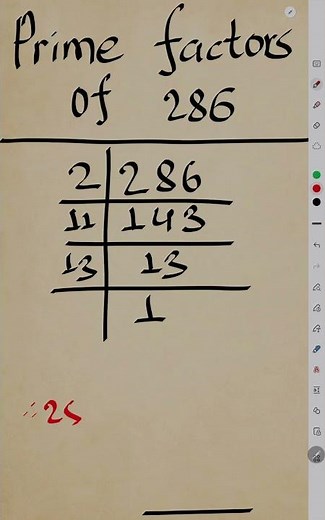 Prime factors
of 286
2 | 286
11 | 143
13 | 13
1
∴ 2